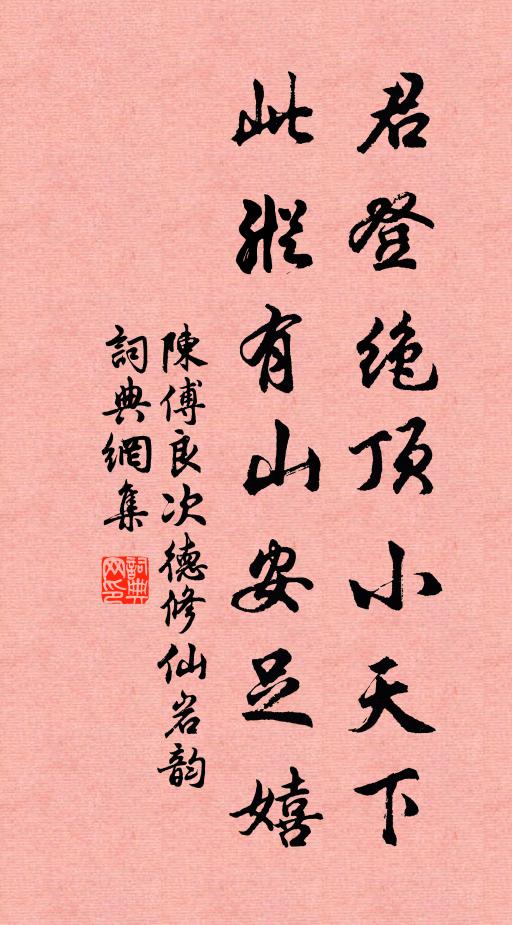 君登绝顶小天下
此纵有山安足嬉
陳傅良次德修仙岩韵
詞典網集
詞典网印